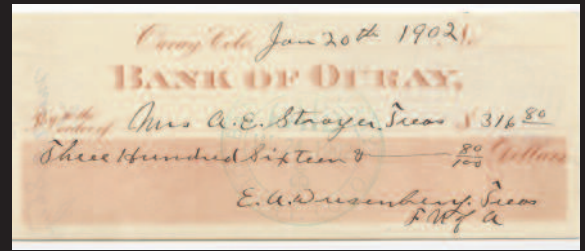 Ouray Colo. Jan 20th 1902
BANK OF OURAY,
Pay to the
order of Mrs A. E. Strayer, Treas $ 316 80
Three Hundred Sixteen & 80/100 Dollars
E. A. Treas